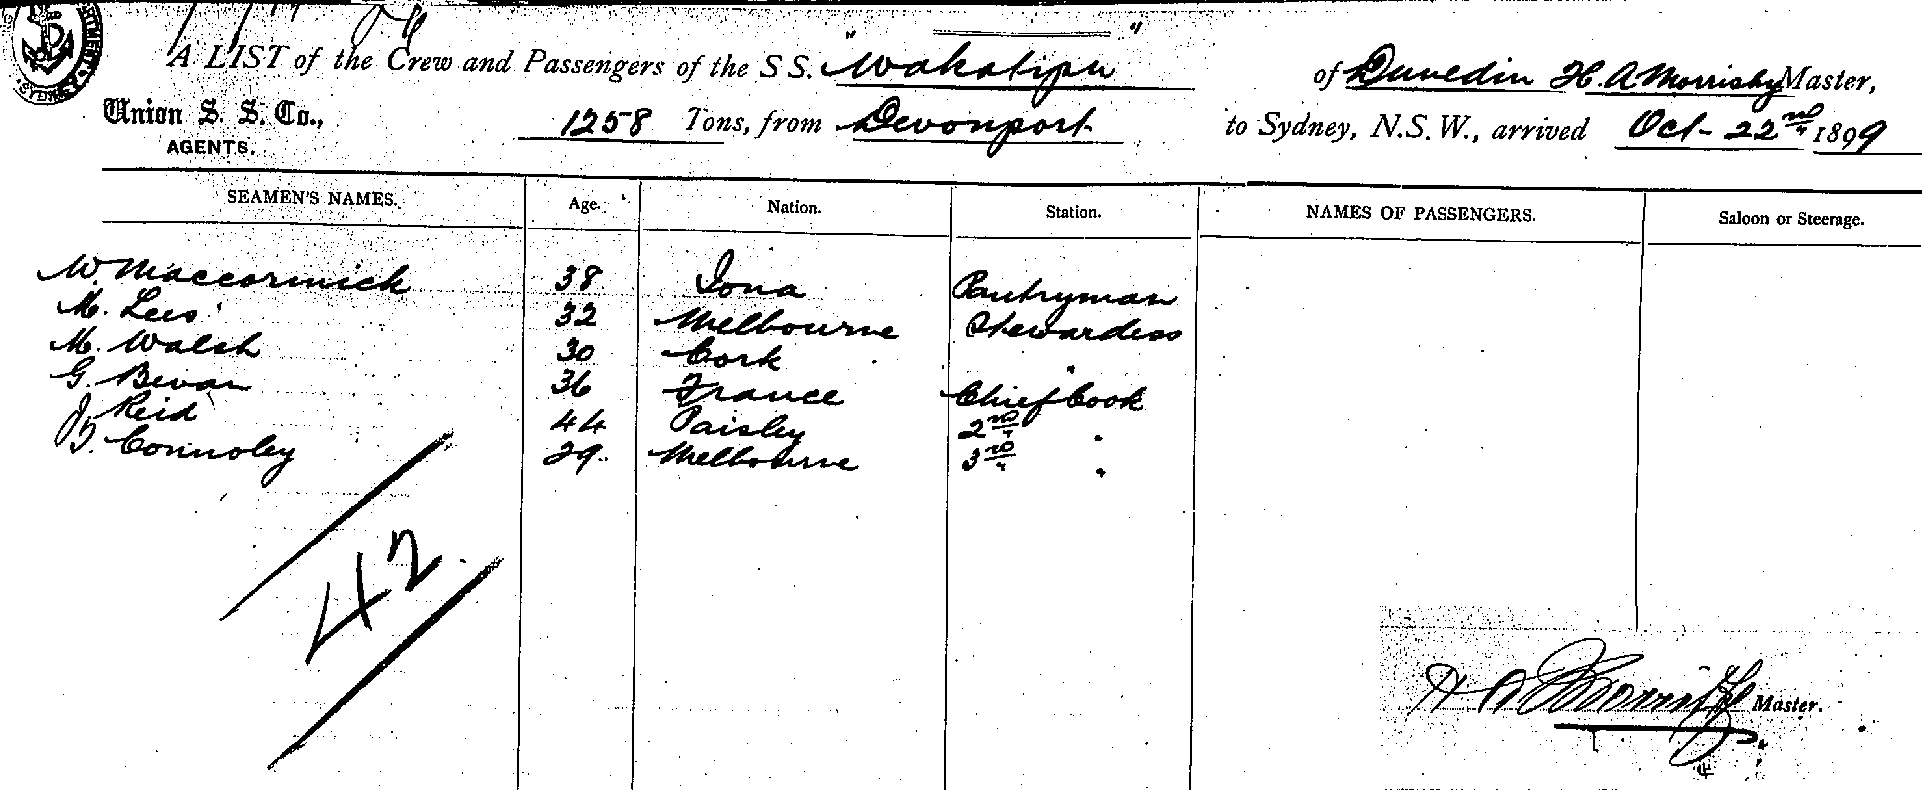 A LIST of the Crew and Passengers of the S S. "Wakatipu" of Dunedin H. A Morrisby Master,
Union S. S. Co., 1258 Tons, from Devonport to Sydney, N.S.W., arrived Oct- 22nd 1899
AGENTS.
SEAMEN'S NAMES. Age. Nation. Station. NAMES OF PASSENGERS. Saloon or Steerage.
W. Maccormick 38 Iona Pantryman
M. Lees 32 Melbourne Stewardess
M. Walsh 30 Cork "
G. Bevan 36 France Chief Cook
J. Reid 44 Paisley 2nd "
T. Connoley 29. Melbourne 3rd "
42
H A Morrisby Master.